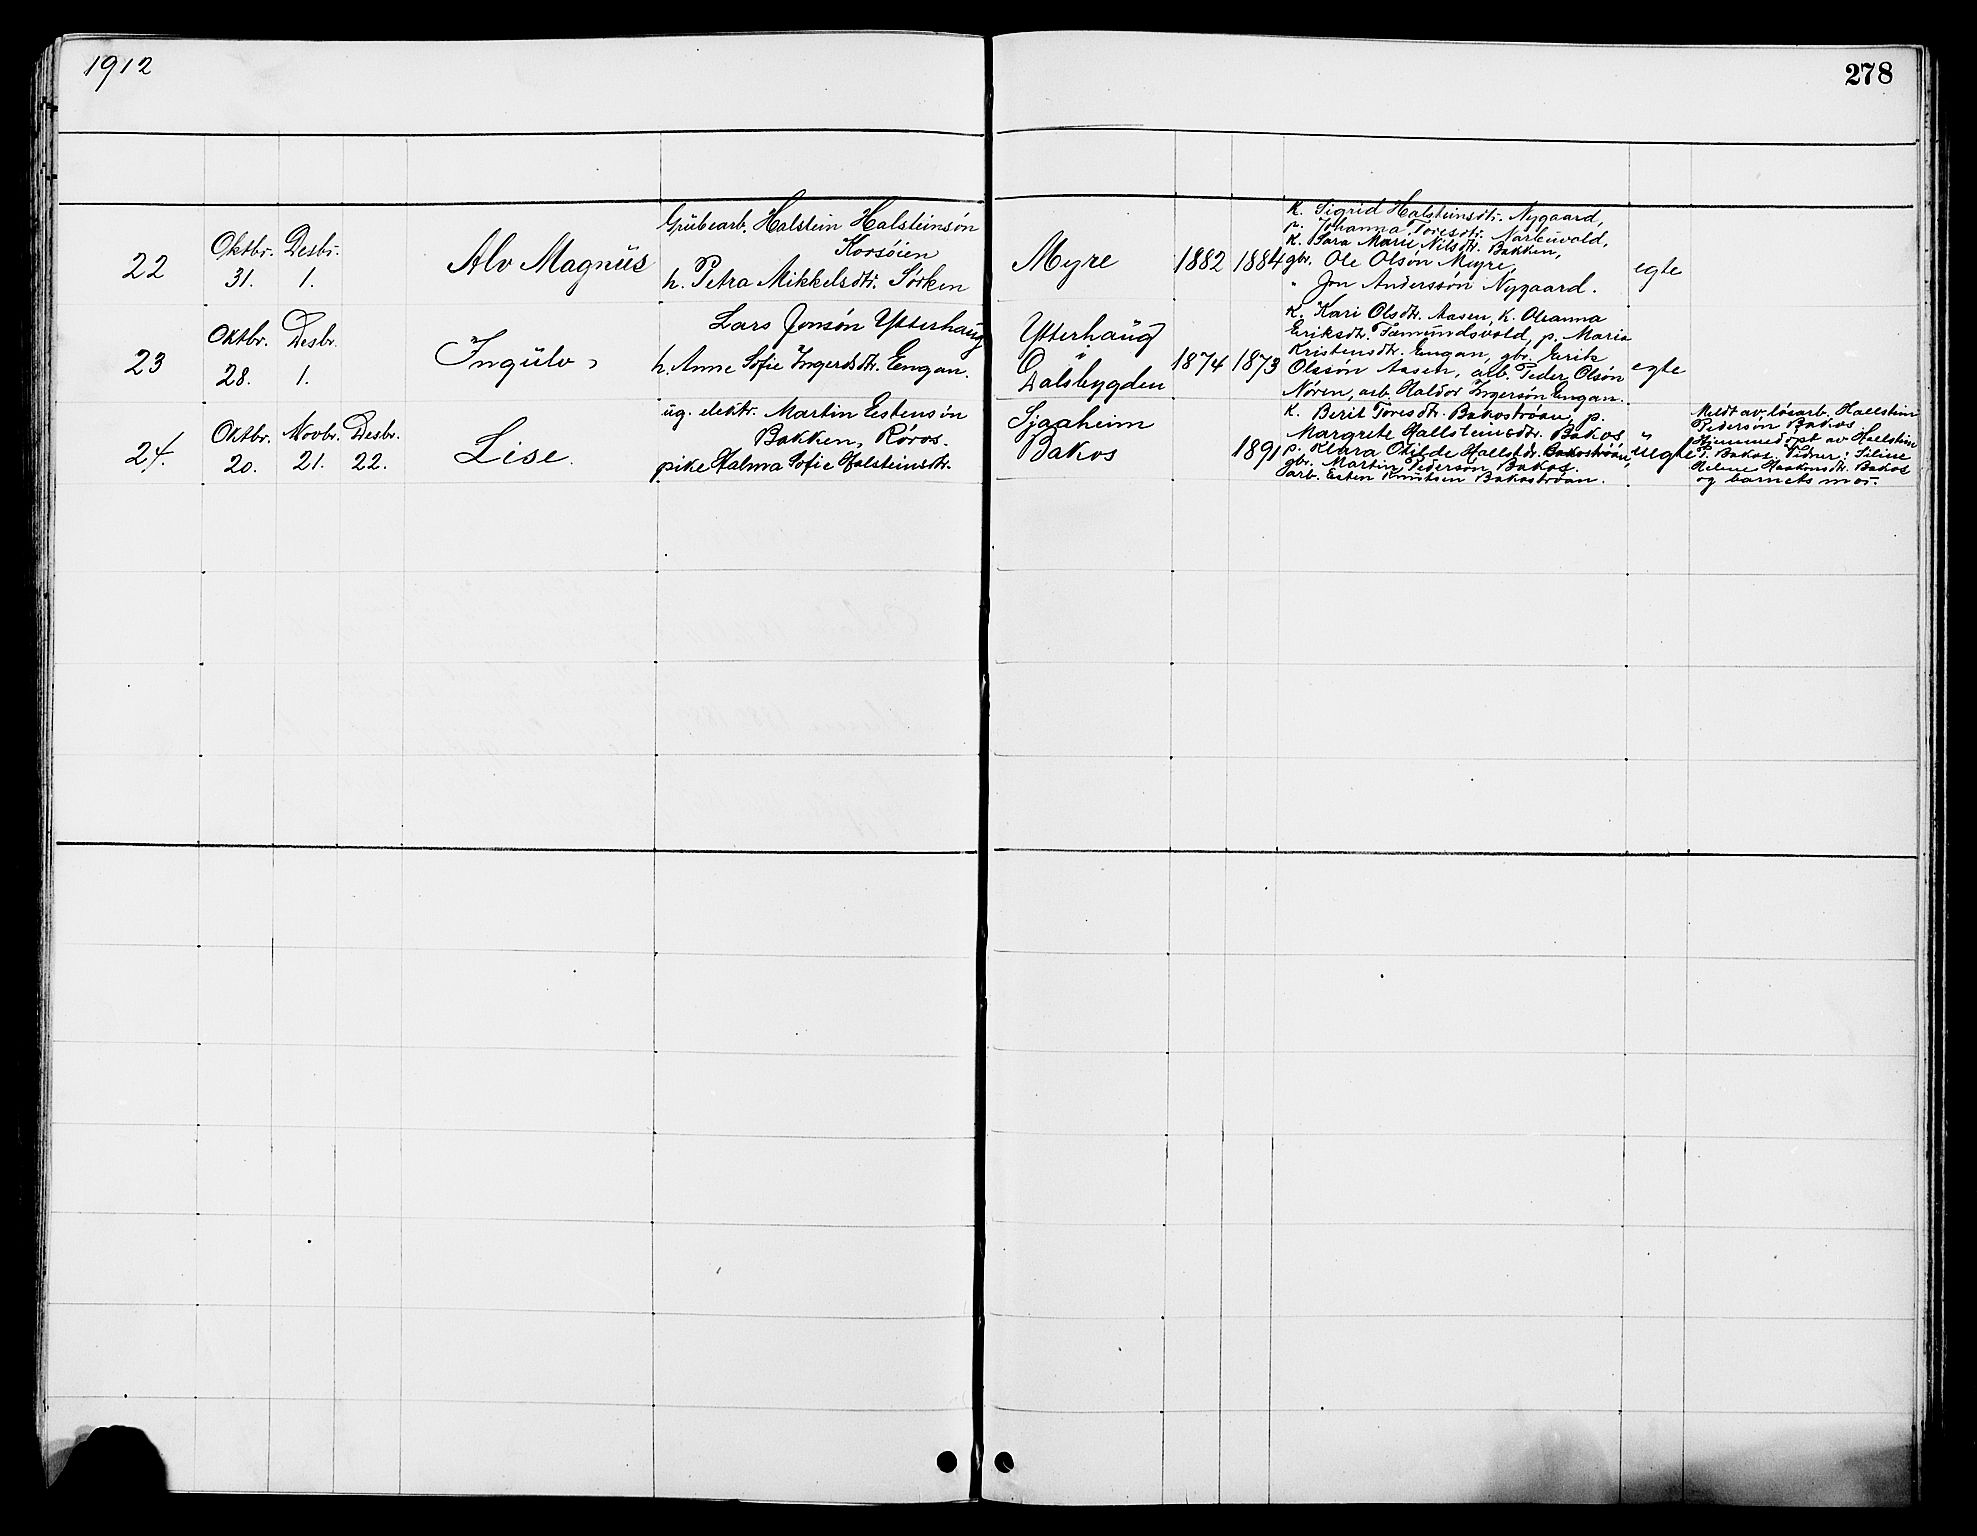 1912
278
22
Oktbr. Desbr.
31. 1.
Alv Magnus
Grubearb. Halstein Halsteinsøn
Korsøien
h. Petra Mikkelsdtr. Sørken
Myre
1882 1884
k. Sigrid Halsteinsdtr. Nygaard,
p. Johanna Toresdtr. Narbuvold,
k. Sara Marie Nilsdtr. Bakken,
gbr. Ole Olsøn Myre,
" Jon Anderssøn Nygaard.
egte
23
Oktbr. Desbr.
28. 1.
Ingulv
Lars Jonsøn Ytterhaug
h. Anne Sofie Ingersdtr. Engan.
Ytterhaug
i
Dalsbygden
1874 1873
k. Kari Olsdtr. Aasen, k. Oleanna
Eriksdtr. Fæmundsvold, p. Maria
Kristensdtr. Engan, gbr. Erik
Olssøn Aasen, arb. Peder Olsøn
Nøren, arb. Haldor Ingersøn Engan.
egte
24.
Oktbr. Novbr. Desbr.
20. 21. 22.
Lise.
ug. elektr. Martin Estensøn
Bakken, Røros.
pike Halma Sofie Halsteinsdtr.
Sjaaheim
Bakos
1891
k. Berit Toresdtr. Bakostrøan, p.
Margrete Hallsteinsdtr. Bakos
p. Klara Otilde Hallstdr. Bakostrøan,
gbr. Martin Pedersøn Bakos.
arb. Esten Knutsen Bakostrøan.
uegte
Meldt av løsarb. Hallstein
Pedersøn Bakos
Hjemmedøpt av Hallstein
P. Bakos. Vidner: Siline
Helene Haakonsdtr. Bakos
og barnets mor.